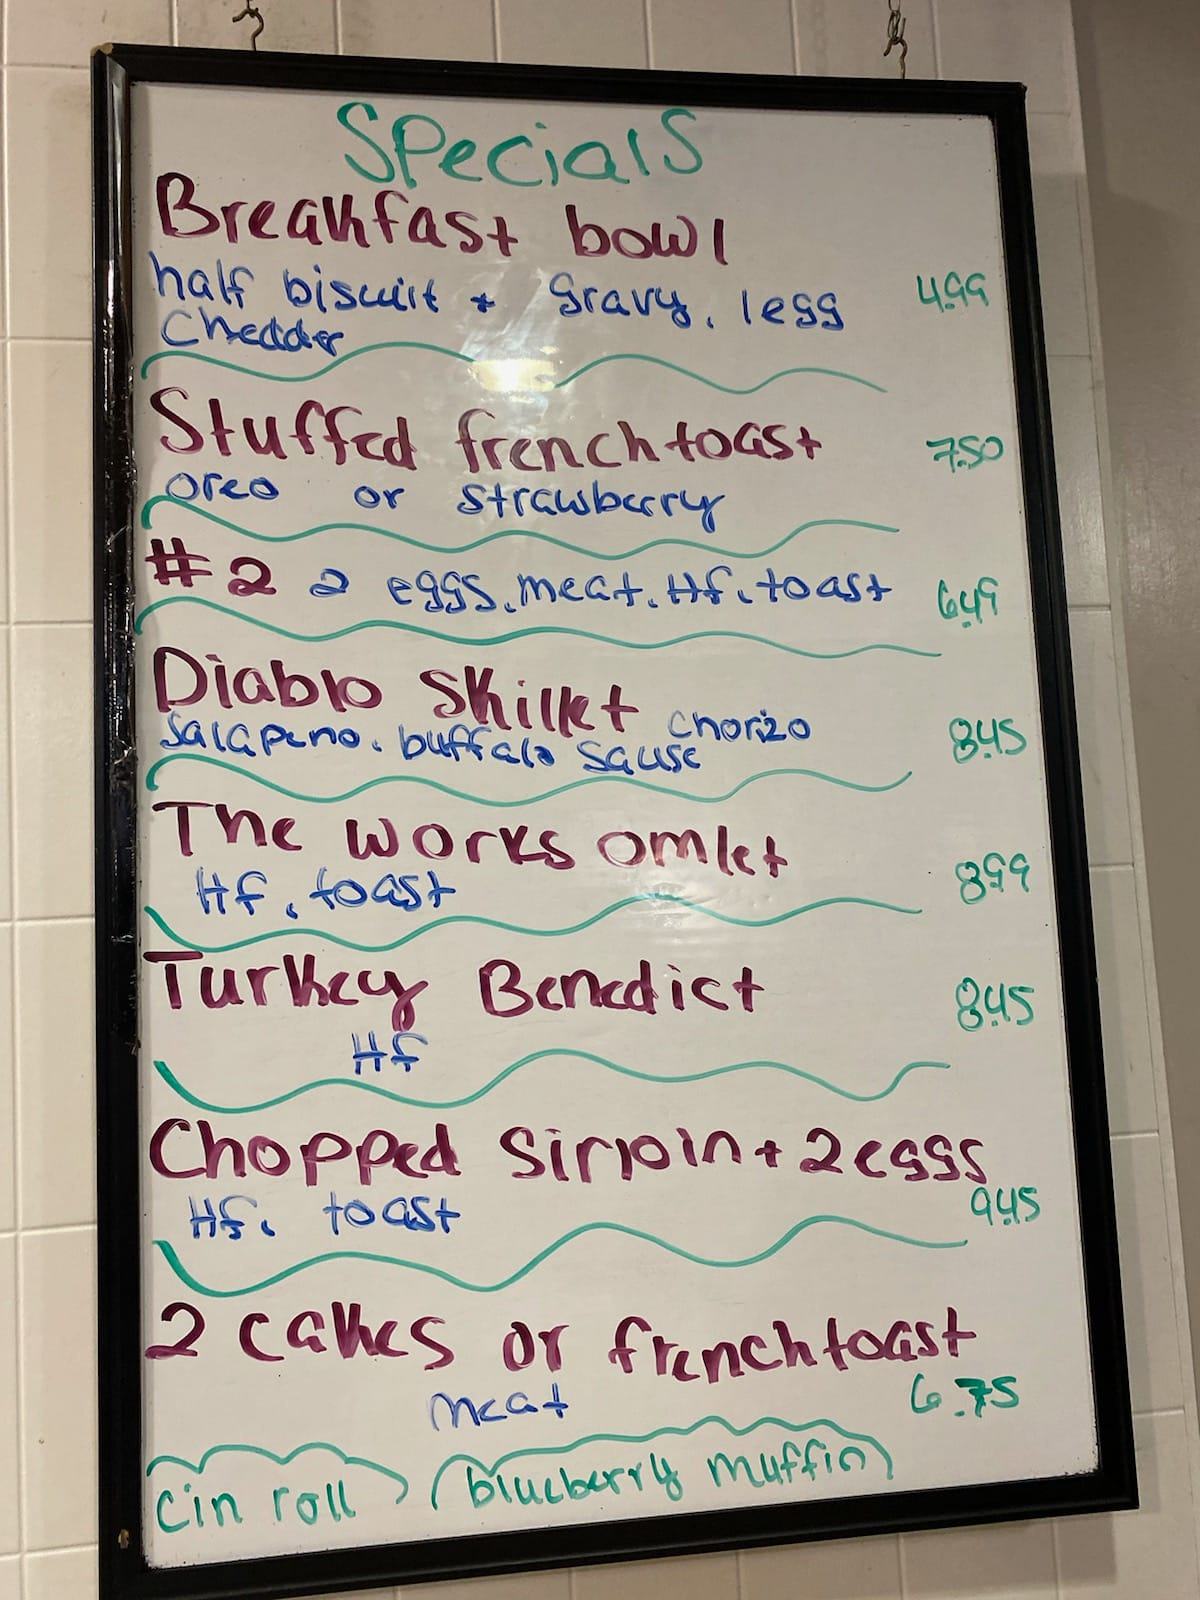 Specials
Breakfast bowl
half biscuit + gravy, 1 egg 4.99
Chedder
Stuffed french toast 7.50
oreo or strawberry
#2 2 eggs, meat, Hf, toast 6.49
Diablo Skillet
chorizo
Jalapeno, buffalo sause 8.45
The works omlet
Hf, toast 8.99
Turkey Benedict 8.45
Hf
Chopped Sirloin + 2 eggs
Hf, toast 9.45
2 cakes or french toast
meat 6.75
cin roll blueberry muffin